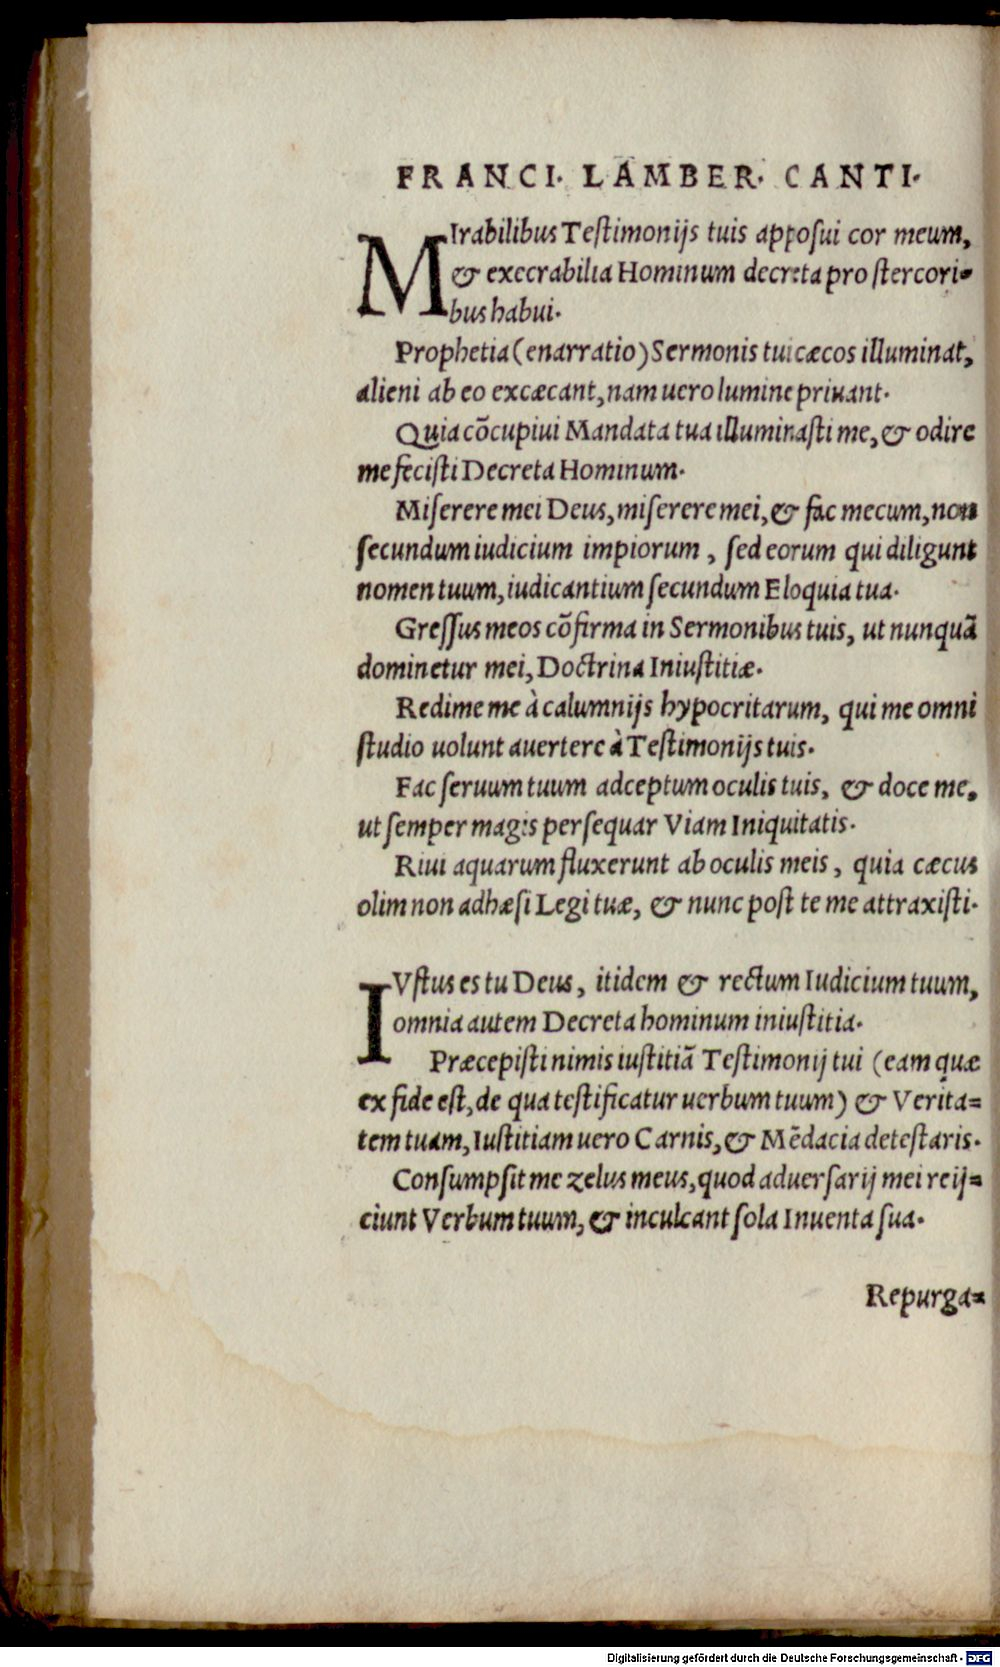 FRANCI. LAMBER. CANTI.
MIrabilibus Testimonijs tuis apposui cor meum,
& execrabilia Hominum decreta pro stercori-
bus habui.
Prophetia (enarratio) Sermonis tui cæcos illuminat,
alieni ab eo excæcant, nam uero lumine priuant.
Quia cõcupiui Mandata tua illuminasti me, & odire
me fecisti Decreta Hominum.
Miserere mei Deus, miserere mei, & fac mecum, non
secundum iudicium impiorum, sed eorum qui diligunt
nomen tuum, iudicantium secundum Eloquia tua.
Gressus meos cõfirma in Sermonibus tuis, ut nunquã
dominetur mei, Doctrina Iniustitiæ.
Redime me à calumnijs hypocritarum, qui me omni
studio uolunt auertere à Testimonijs tuis.
Fac seruum tuum adceptum oculis tuis, & doce me,
ut semper magis persequar Viam Iniquitatis.
Riui aquarum fluxerunt ab oculis meis, quia cæcus
olim non adhæsi Legi tuæ, & nunc post te me attraxisti.
IVstus es tu Deus, itidem & rectum Iudicium tuum,
omnia autem Decreta hominum iniustitia.
Præcepisti nimis iustitiã Testimonij tui (eam quæ
ex fide est, de qua testificatur uerbum tuum) & Verita-
tem tuam, Iustitiam uero Carnis, & Mẽdacia detestaris.
Consumpsit me zelus meus, quod aduersarij mei reij-
ciunt Verbum tuum, & inculcant sola Inuenta sua.
Repurga-
Digitalisierung gefördert durch die Deutsche Forschungsgemeinschaft - DFG